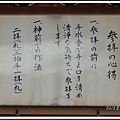 参拝の心得
一、参拝の前に
手水舎で手と口を清め
清浄な気持ちで参拝を
します
一、神前での作法
二拝二拍手一拝